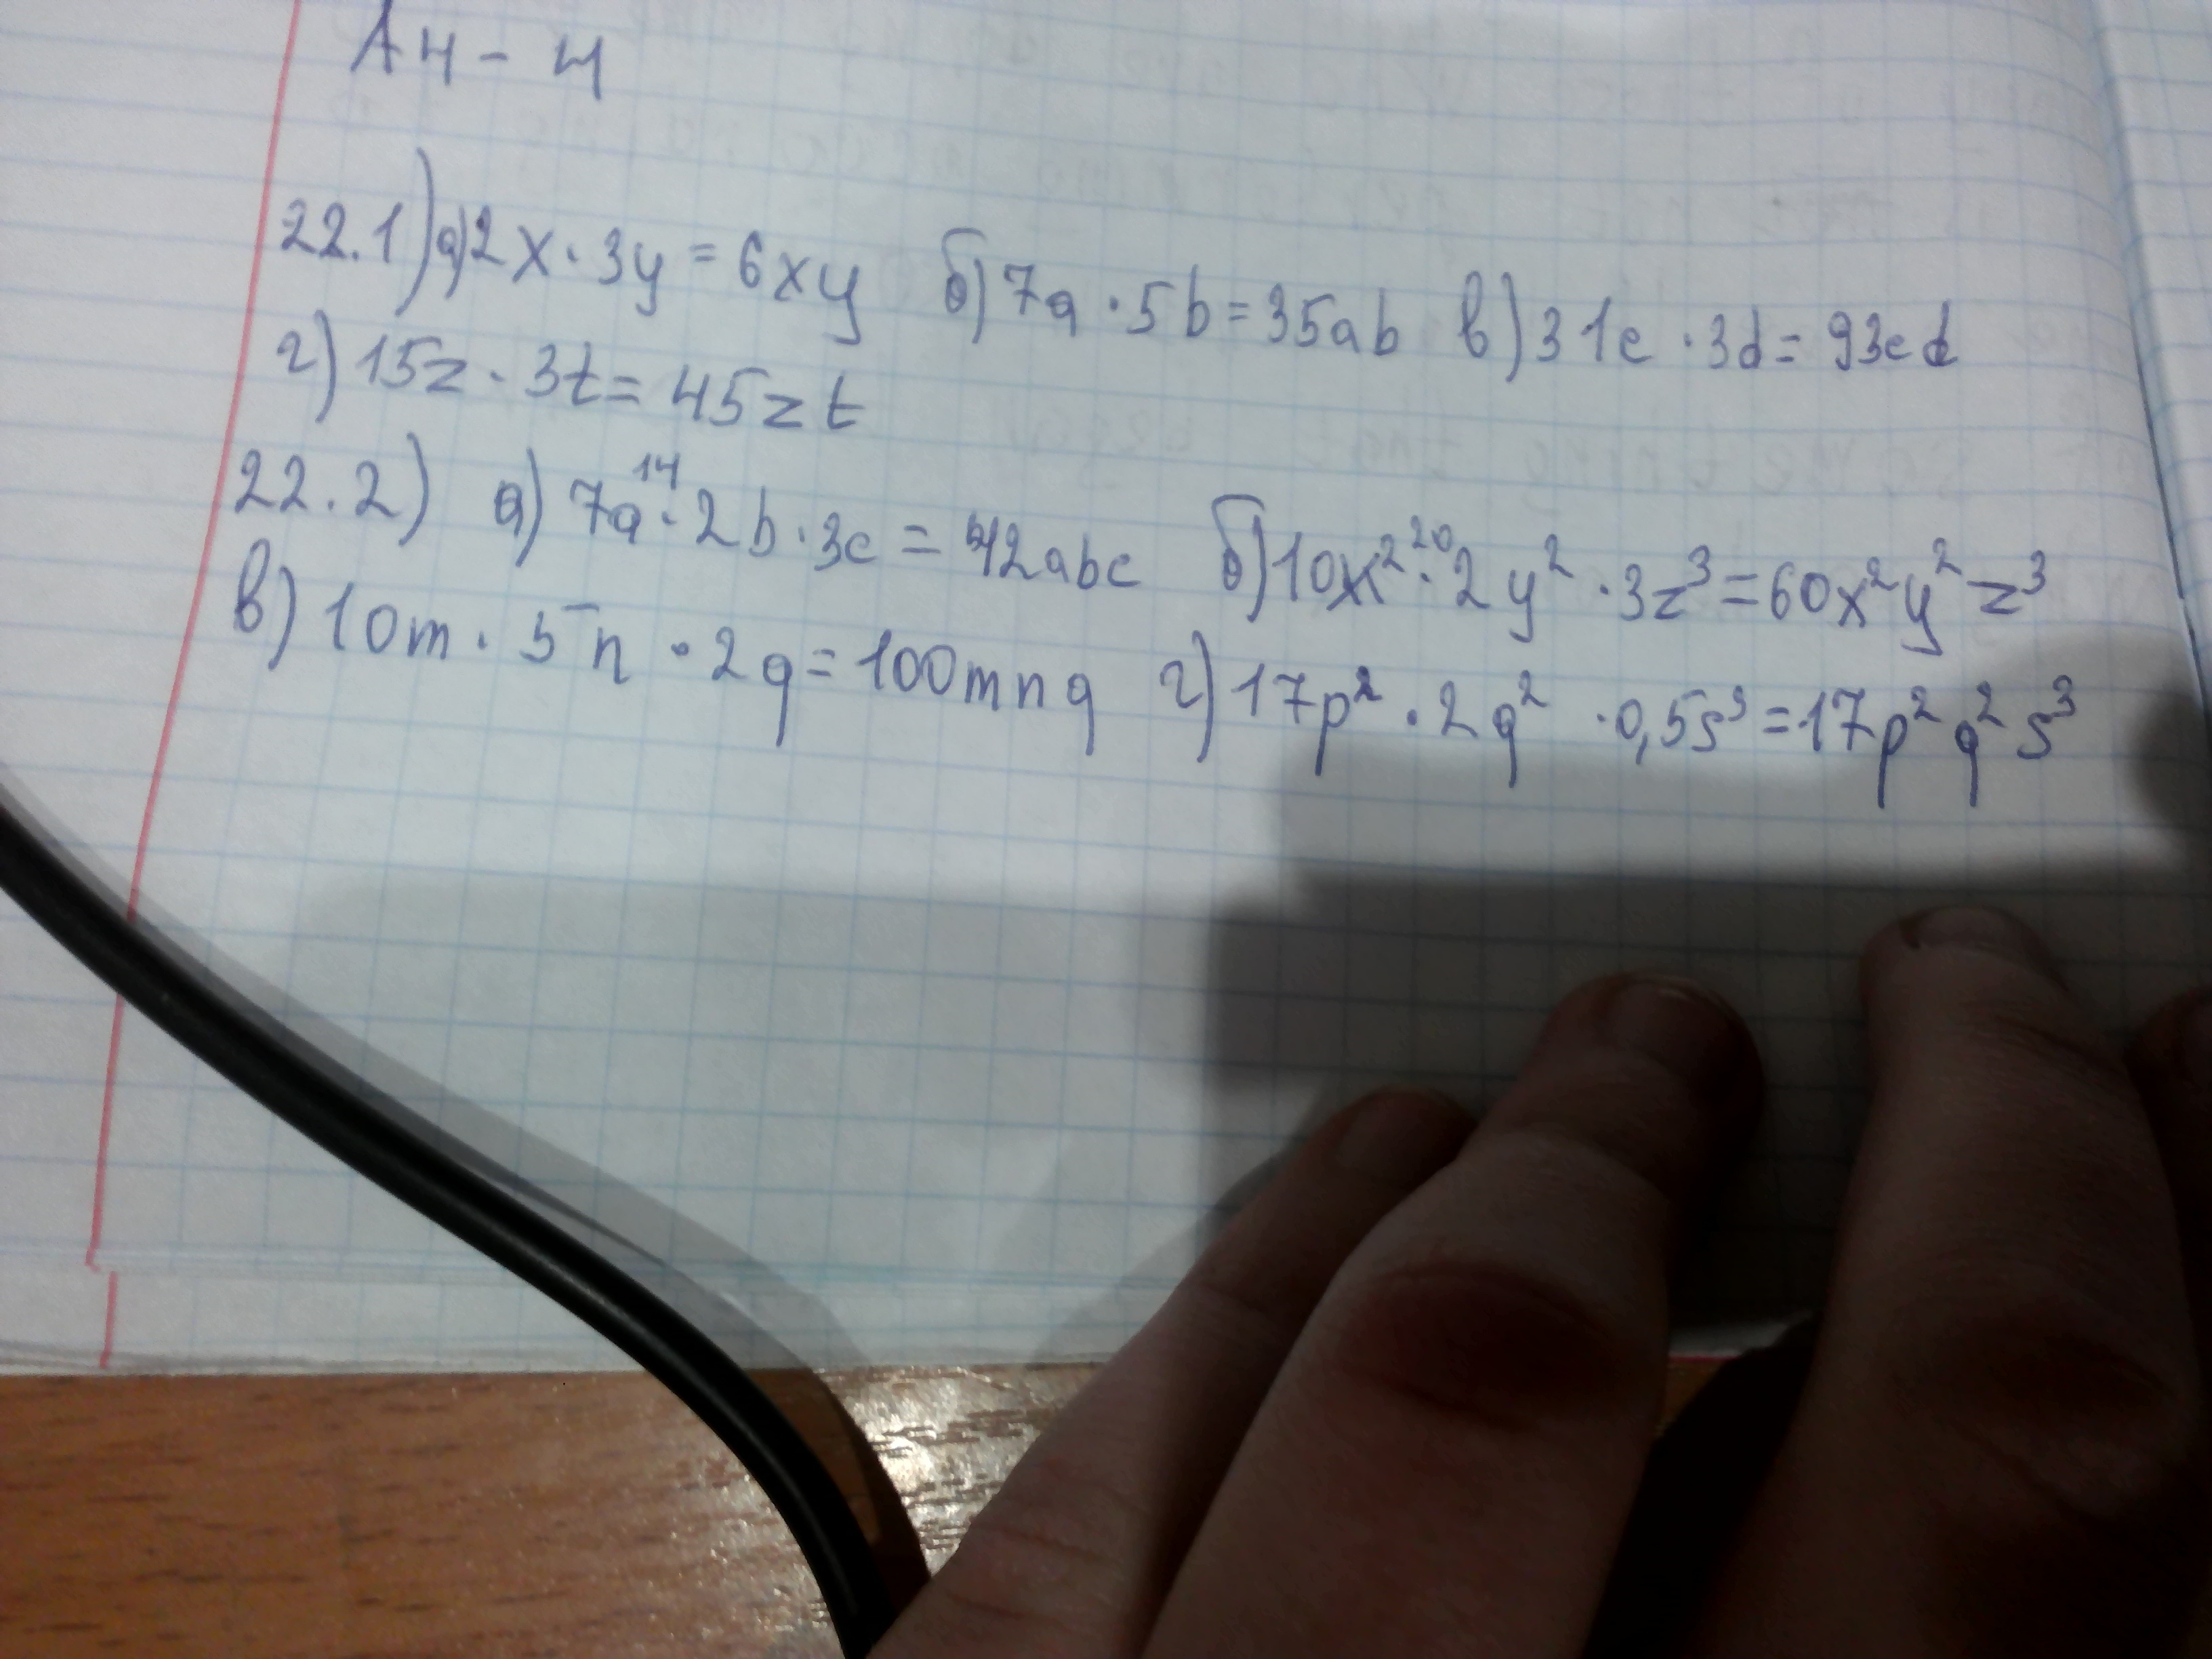 Ан - 4
22.1) а) 2x · 3y = 6xy б) 7a · 5b = 35ab в) 31c · 3d = 93cd
г) 15z · 3t = 45zt
22.2) а) 7a ¹⁴· 2b · 3c = 42abc б) 10x² ²⁰· 2y² · 3z³ = 60x²y²z³
в) 10m · 5n · 2q = 100mnq г) 17p² · 2q² · 0,5s³ = 17p²q²s³